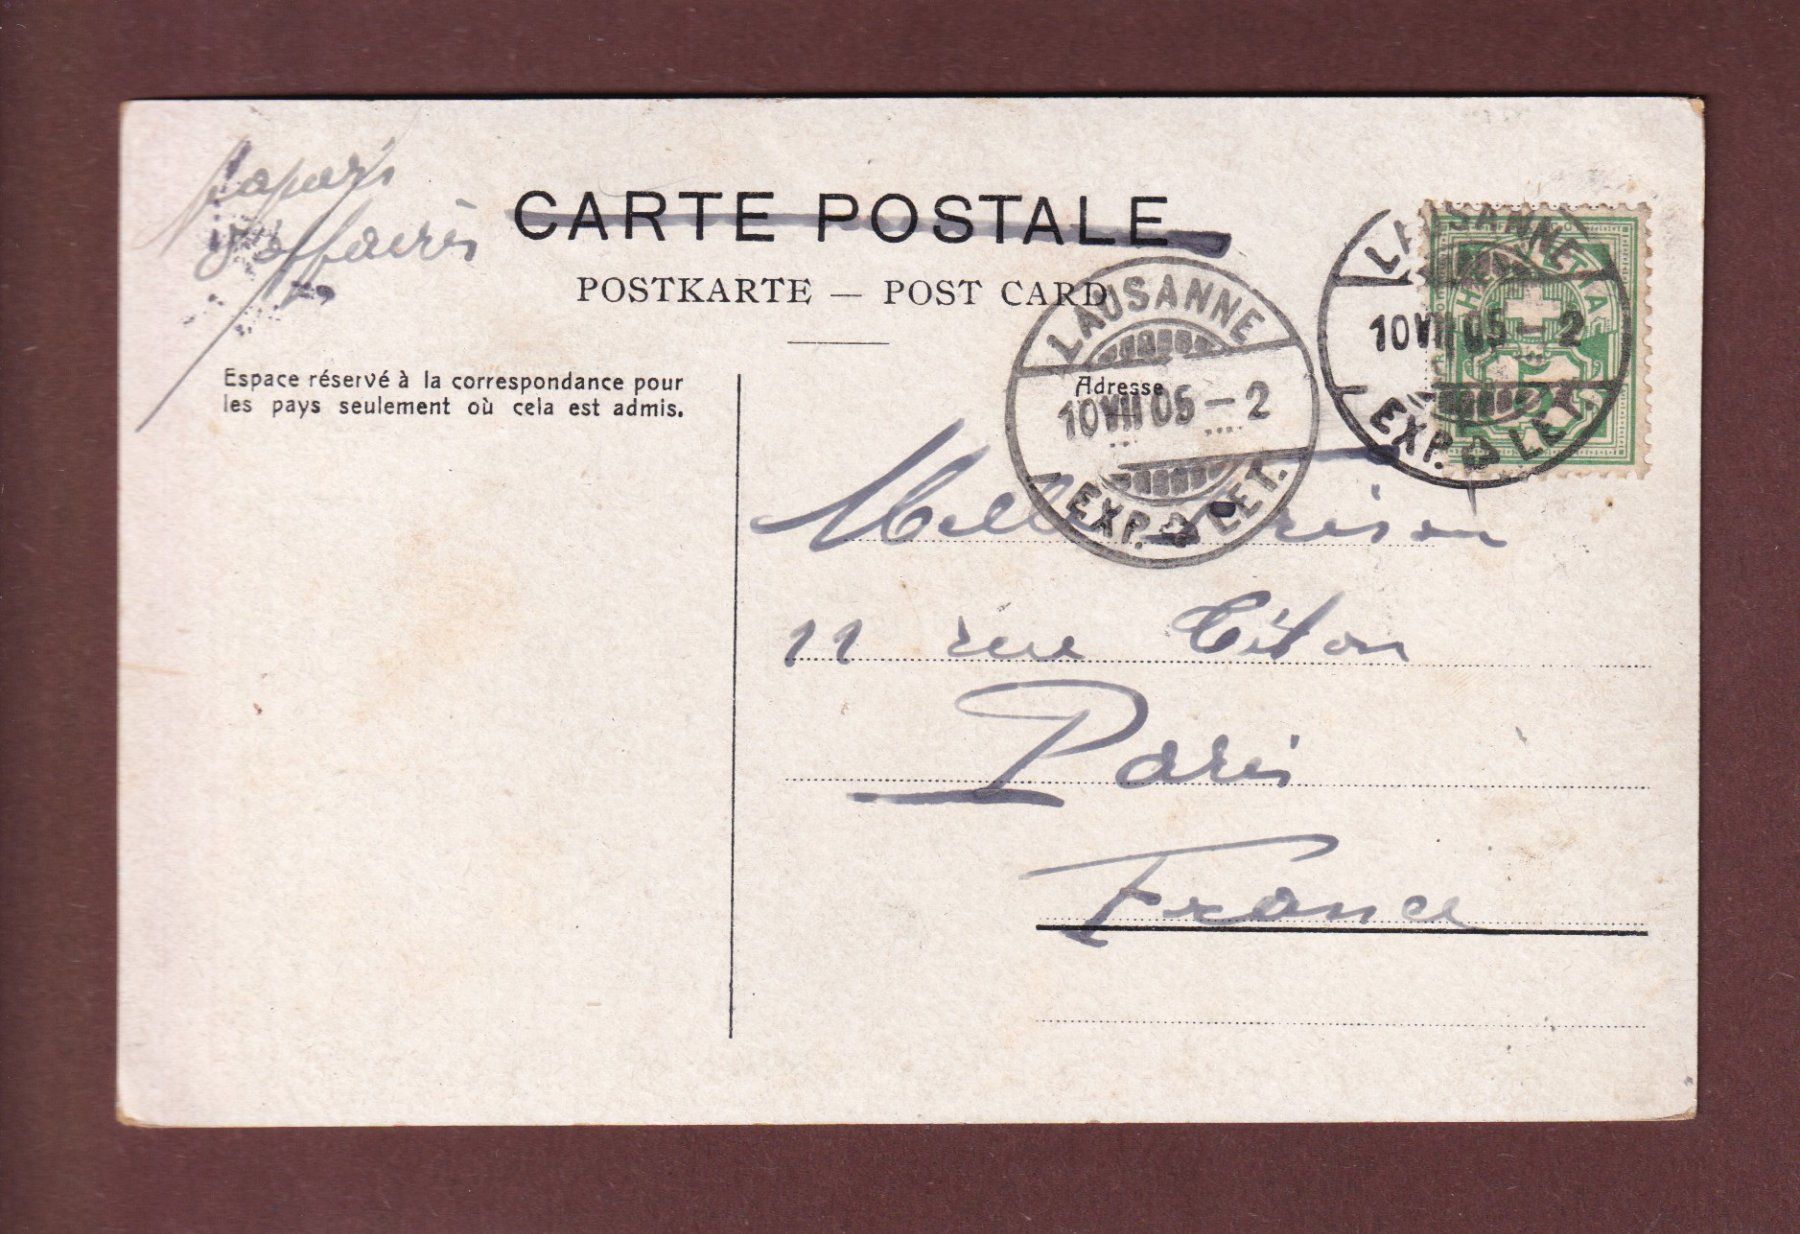 papiers
d'affaires
CARTE POSTALE
POSTKARTE — POST CARD
Espace réservé à la correspondance pour
les pays seulement où cela est admis.
LAUSANNE
10 VII 05 – 2
EXP. LET.
LAUSANNE
10 VII 05 – 2
EXP. LET.
HELVETIA
Adresse
Melle
11 rue Titon
Paris
France